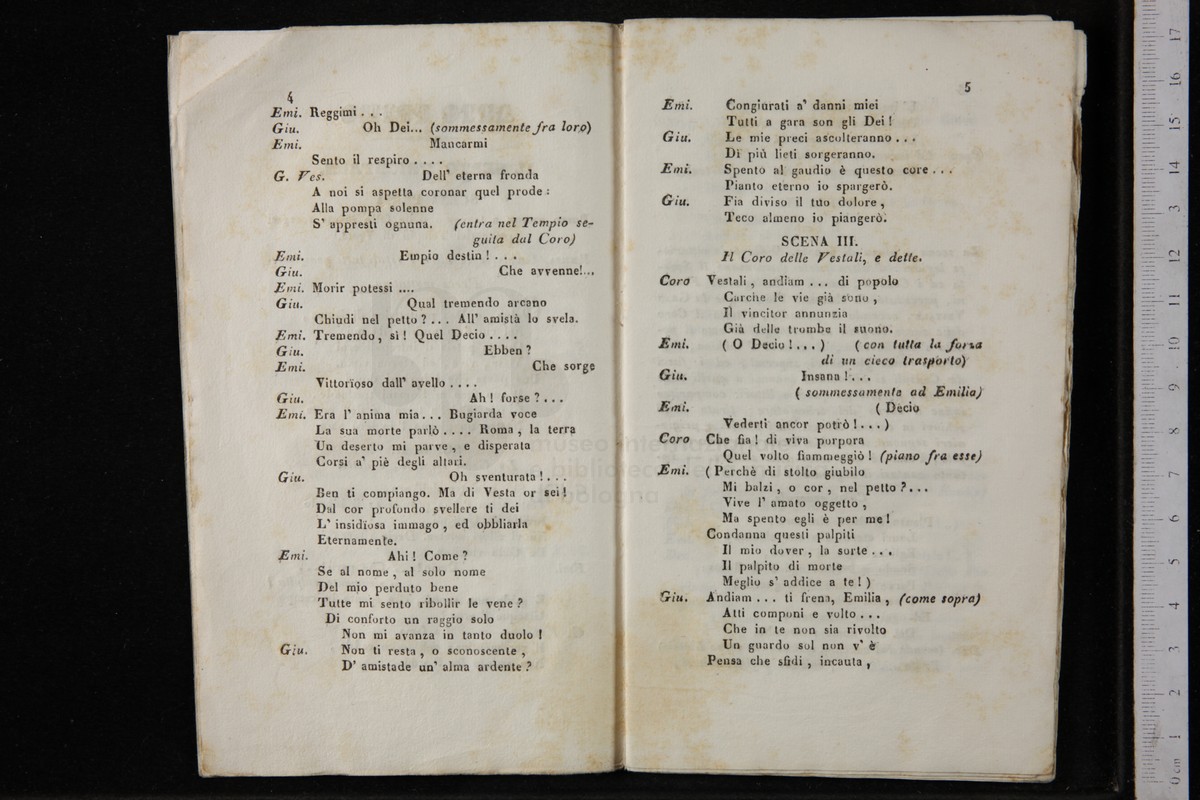 4
Emi. Reggimi . . .
Giu. Oh Dei... (sommessamente fra loro)
Emi. Mancarmi
Sento il respiro . . . .
G. Ves. Dell' eterna fronda
A noi si aspetta coronar quel prode :
Alla pompa solenne
S' appresti ognuna. (entra nel Tempio se-
guita dal Coro)
Emi. Empio destin ! . . .
Giu. Che avvenne!...
Emi. Morir potessi ....
Giu. Qual tremendo arcano
Chiudi nel petto ? . . . All' amistà lo svela.
Emi. Tremendo, sì ! Quel Decio . . . .
Giu. Ebben ?
Emi. Che sorge
Vittorioso dall' avello . . . .
Giu. Ah ! forse ? . . .
Emi. Era l' anima mia . . . Bugiarda voce
La sua morte parlò . . . . Roma , la terra
Un deserto mi parve , e disperata
Corsi a' piè degli altari.
Giu. Oh sventurata ! . . .
Ben ti compiango. Ma di Vesta or sei !
Dal cor profondo svellere ti dei
L' insidiosa immago , ed obbliarla
Eternamente.
Emi. Ahi ! Come ?
Se al nome , al solo nome
Del mio perduto bene
Tutte mi sento ribollir le vene ?
Di conforto un raggio solo
Non mi avanza in tanto duolo !
Giu. Non ti resta , o sconoscente ,
D' amistade un' alma ardente ?
5
Emi. Congiurati a' danni miei
Tutti a gara son gli Dei !
Giu. Le mie preci ascolteranno . . .
Dì più lieti sorgeranno.
Emi. Spento al gaudio è questo core . . .
Pianto eterno io spargerò.
Giu. Fia diviso il tuo dolore ,
Teco almeno io piangerò.
SCENA III.
Il Coro delle Vestali, e dette.
Coro Vestali , andiam . . . di popolo
Carche le vie già sono ,
Il vincitor annunzia
Già delle trombe il suono.
Emi. ( O Decio ! . . . ) ( con tutta la forza
di un cieco trasporto)
Giu. Insana ! . . .
( sommessamente ad Emilia)
Emi. ( Decio
Vederti ancor potrò ! . . . )
Coro Che fia ! di viva porpora
Quel volto fiammeggiò ! (piano fra esse)
Emi. ( Perchè di stolto giubilo
Mi balzi , o cor , nel petto ? . . .
Vive l' amato oggetto ,
Ma spento egli è per me !
Condanna questi palpiti
Il mio dover , la sorte . . .
Il palpito di morte
Meglio s' addice a te ! )
Giu. Andiam . . . ti frena, Emilia , (come sopra)
Atti componi e volto . . .
Che in te non sia rivolto
Un guardo sol non v' è
Pensa che sfidi , incauta ,
museo internazionale
biblioteca
bologna
0 cm 1 2 3 4 5 6 7 8 9 10 11 12 13 14 15 16 17